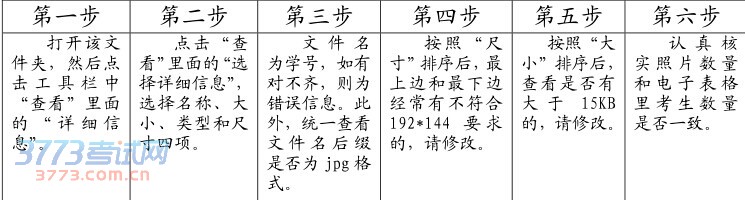 第一步
打开该文
件夹，然后点
击工具栏中
“查看”里面
的“详细信
息”。
第二步
点击“查
看”里面的“选
择详细信息”，
选择名称、大
小、类型和尺
寸四项。
第三步
文件名
为学号，如有
对不齐，则为
错误信息。此
外，统一查看
文件名后缀
是否为 jpg 格
式。
第四步
按照“尺
寸”排序后，最
上边和最下边
经常有不符合
192*144 要求
的，请修改。
第五步
按照“大
小”排序后，
查看是否有
大于 15KB
的，请修改。
第六步
认真核
实照片数量
和电子表格
里考生数量
是否一致。
3773考试网
3773.com.cn